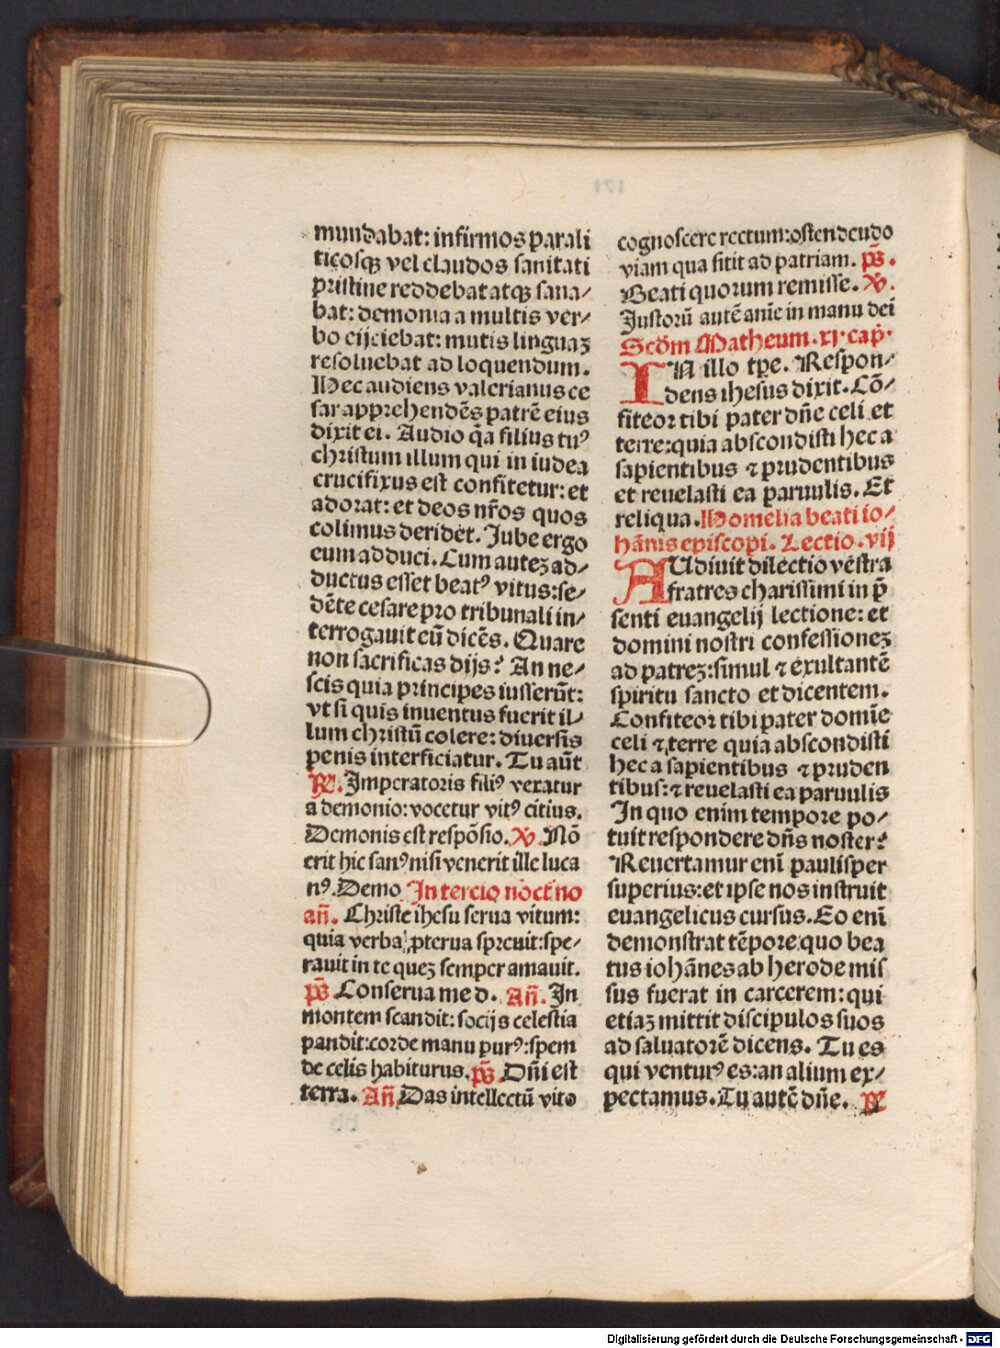 mundabat: infirmos parali
ticosqꝫ vel claudos sanitati
pristine reddebat atqꝫ sana⸗
bat: demonia a multis ver⸗
bo eijciebat: mutis linguaꝫ
resoluebat ad loquendum.
Hec audiens valerianus ce
sar apprehendēs patrē eius
dixit ei. Audio q̄a filius tuꝰ
christum illum qui in iudea
crucifixus est confitetur: et
adorat: et deos nr̄os quos
colimus deridet. Jube ergo
eum adduci. Cum auteꝫ ad⸗
ductus esset beatꝰ vitus: se⸗
dēte cesare pro tribunali in⸗
terrogauit eū dicēs. Quare
non sacrificas dijs? An ne⸗
scis quia principes iusserūt:
vt si quis inuentus fuerit il⸗
lum christū colere: diuersis
penis interficiatur. Tu aūt
℞. Imperatoris filiꝰ vexatur
a demonio: vocetur vitꝰ citius.
Demonis est respōsio. ℣. Nō
erit hic sanꝰ nisi venerit ille luca
nꝰ. Demo In tercio noct̄no
an̄. Christe ihesu serua vitum:
quia verba ꝓterua spreuit: spe⸗
rauit in te queꝫ semper amauit.
p̄s Conserua me d. An̄. In
montem scandit: socijs celestia
pandit: corde manu purꝰ: spem
de celis habiturus. p̄s. Dn̄i est
terra. An̄ Das intellectū vito
cognoscere rectum: ostendendo
viam qua sitit ad patriam. p̄s.
Beati quorum remisse. ℣.
Justorū autē anīe in manu dei
Scd̄m Matheum. xi. cap̄.
IN illo tp̄e. Respon⸗
dens ihesus dixit. Cō⸗
fiteor tibi pater dn̄e celi et
terre: quia abscondisti hec a
sapientibus ⁊ prudentibus
et reuelasti ea paruulis. Et
reliqua. Homelia beati io⸗
hānis episcopi. Lectio. vij
AUdiuit dilectio vestra
fratres charissimi in p̄
senti euangelij lectione: et
domini nostri confessioneꝫ
ad patreꝫ: simul ⁊ exultantē
spiritu sancto et dicentem.
Confiteor tibi pater domīe
celi ⁊ terre quia abscondisti
hec a sapientibus ⁊ pruden
tibus: ⁊ reuelasti ea paruulis
In quo enim tempore po⸗
tuit respondere dn̄s noster?
Reuertamur enī paulisper
superius: et ipse nos instruit
euangelicus cursus. Eo enī
demonstrat tēpore quo bea
tus iohānes ab herode mis
sus fuerat in carcerem: qui
etiaꝫ mittit discipulos suos
ad saluatorē dicens. Tu es
qui venturꝰ es: an alium ex⸗
pectamus. Tu autē dn̄e. ℞
Digitalisierung gefördert durch die Deutsche Forschungsgemeinschaft - DFG